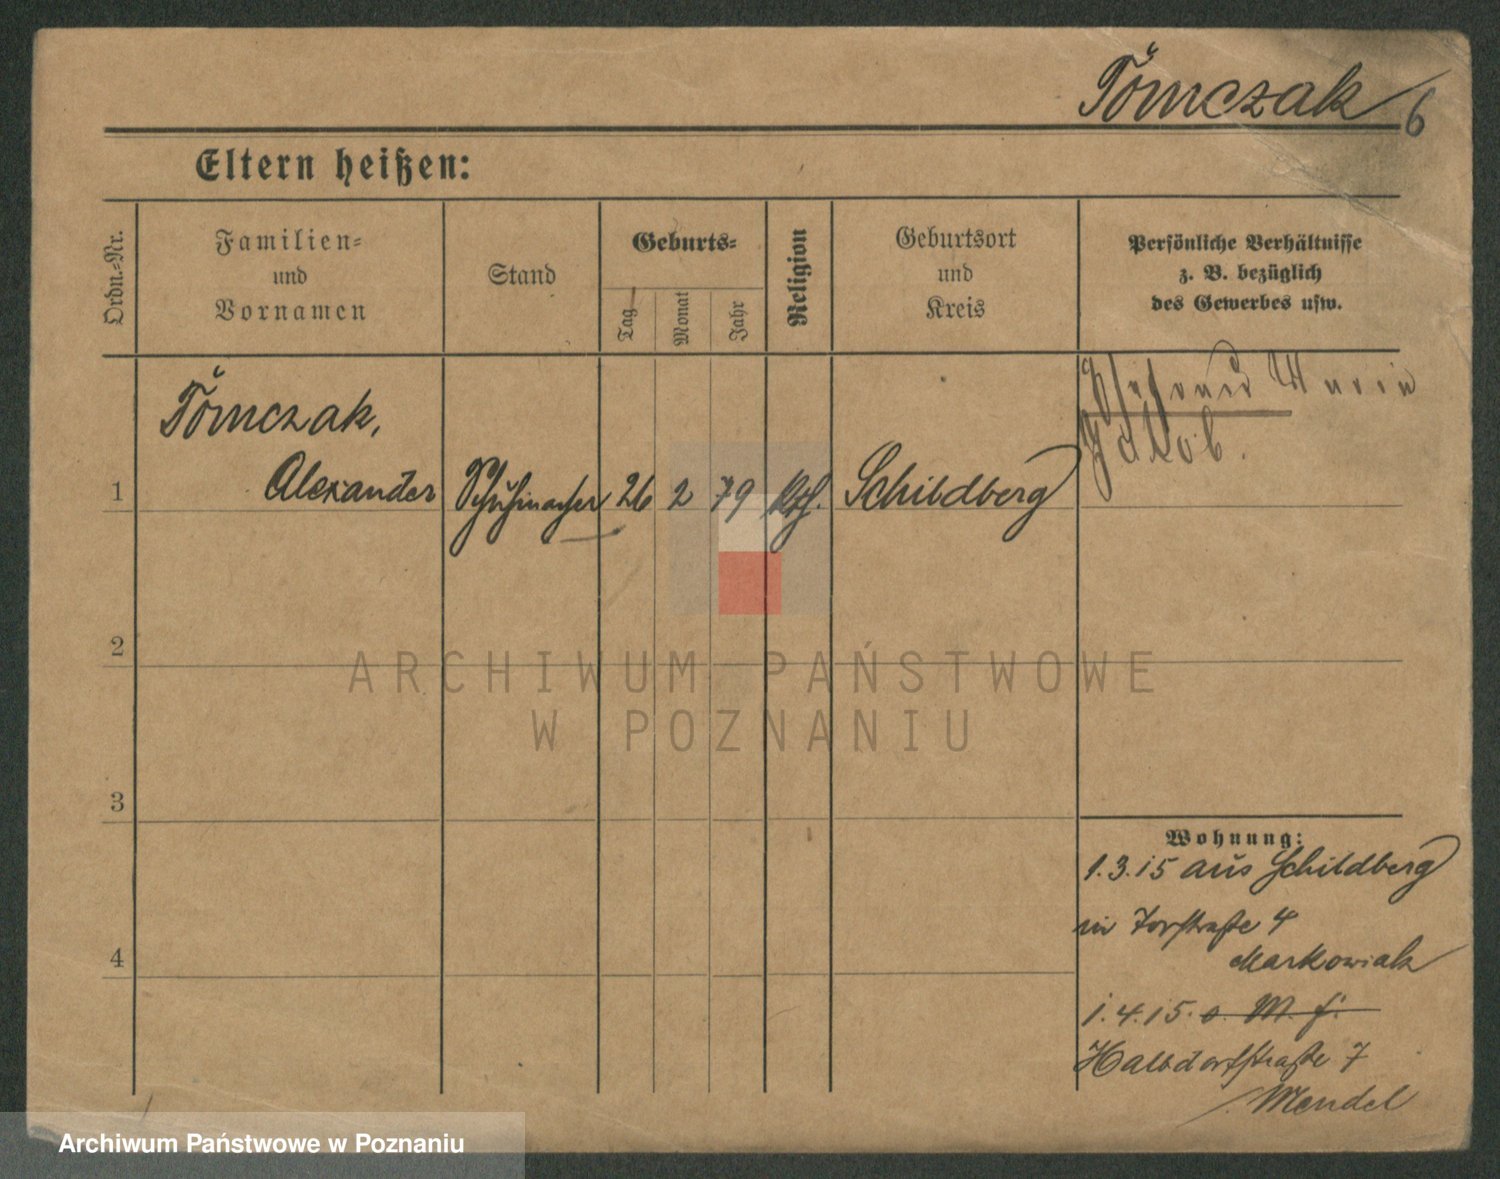 Tomczak
6
Eltern heißen:
Ordn.-Nr.
Familien-
und
Vornamen
Stand
Geburts-
Tag
Monat
Jahr
Religion
Geburtsort
und
Kreis
Persönliche Verhältnisse
z. B. bezüglich
des Gewerbes usw.
Tomczak,
Jakob.
1 Alexander Schuhmacher 26 2 79 kth. Schildberg
2
3
4
Wohnung:
1.3.15 aus Schildberg
in Torstraße 4
Markowiak
1.4.15. o. M. f.
Halbdorfstraße 7
Mendel
ARCHIWUM PAŃSTWOWE
W POZNANIU
Archiwum Państwowe w Poznaniu